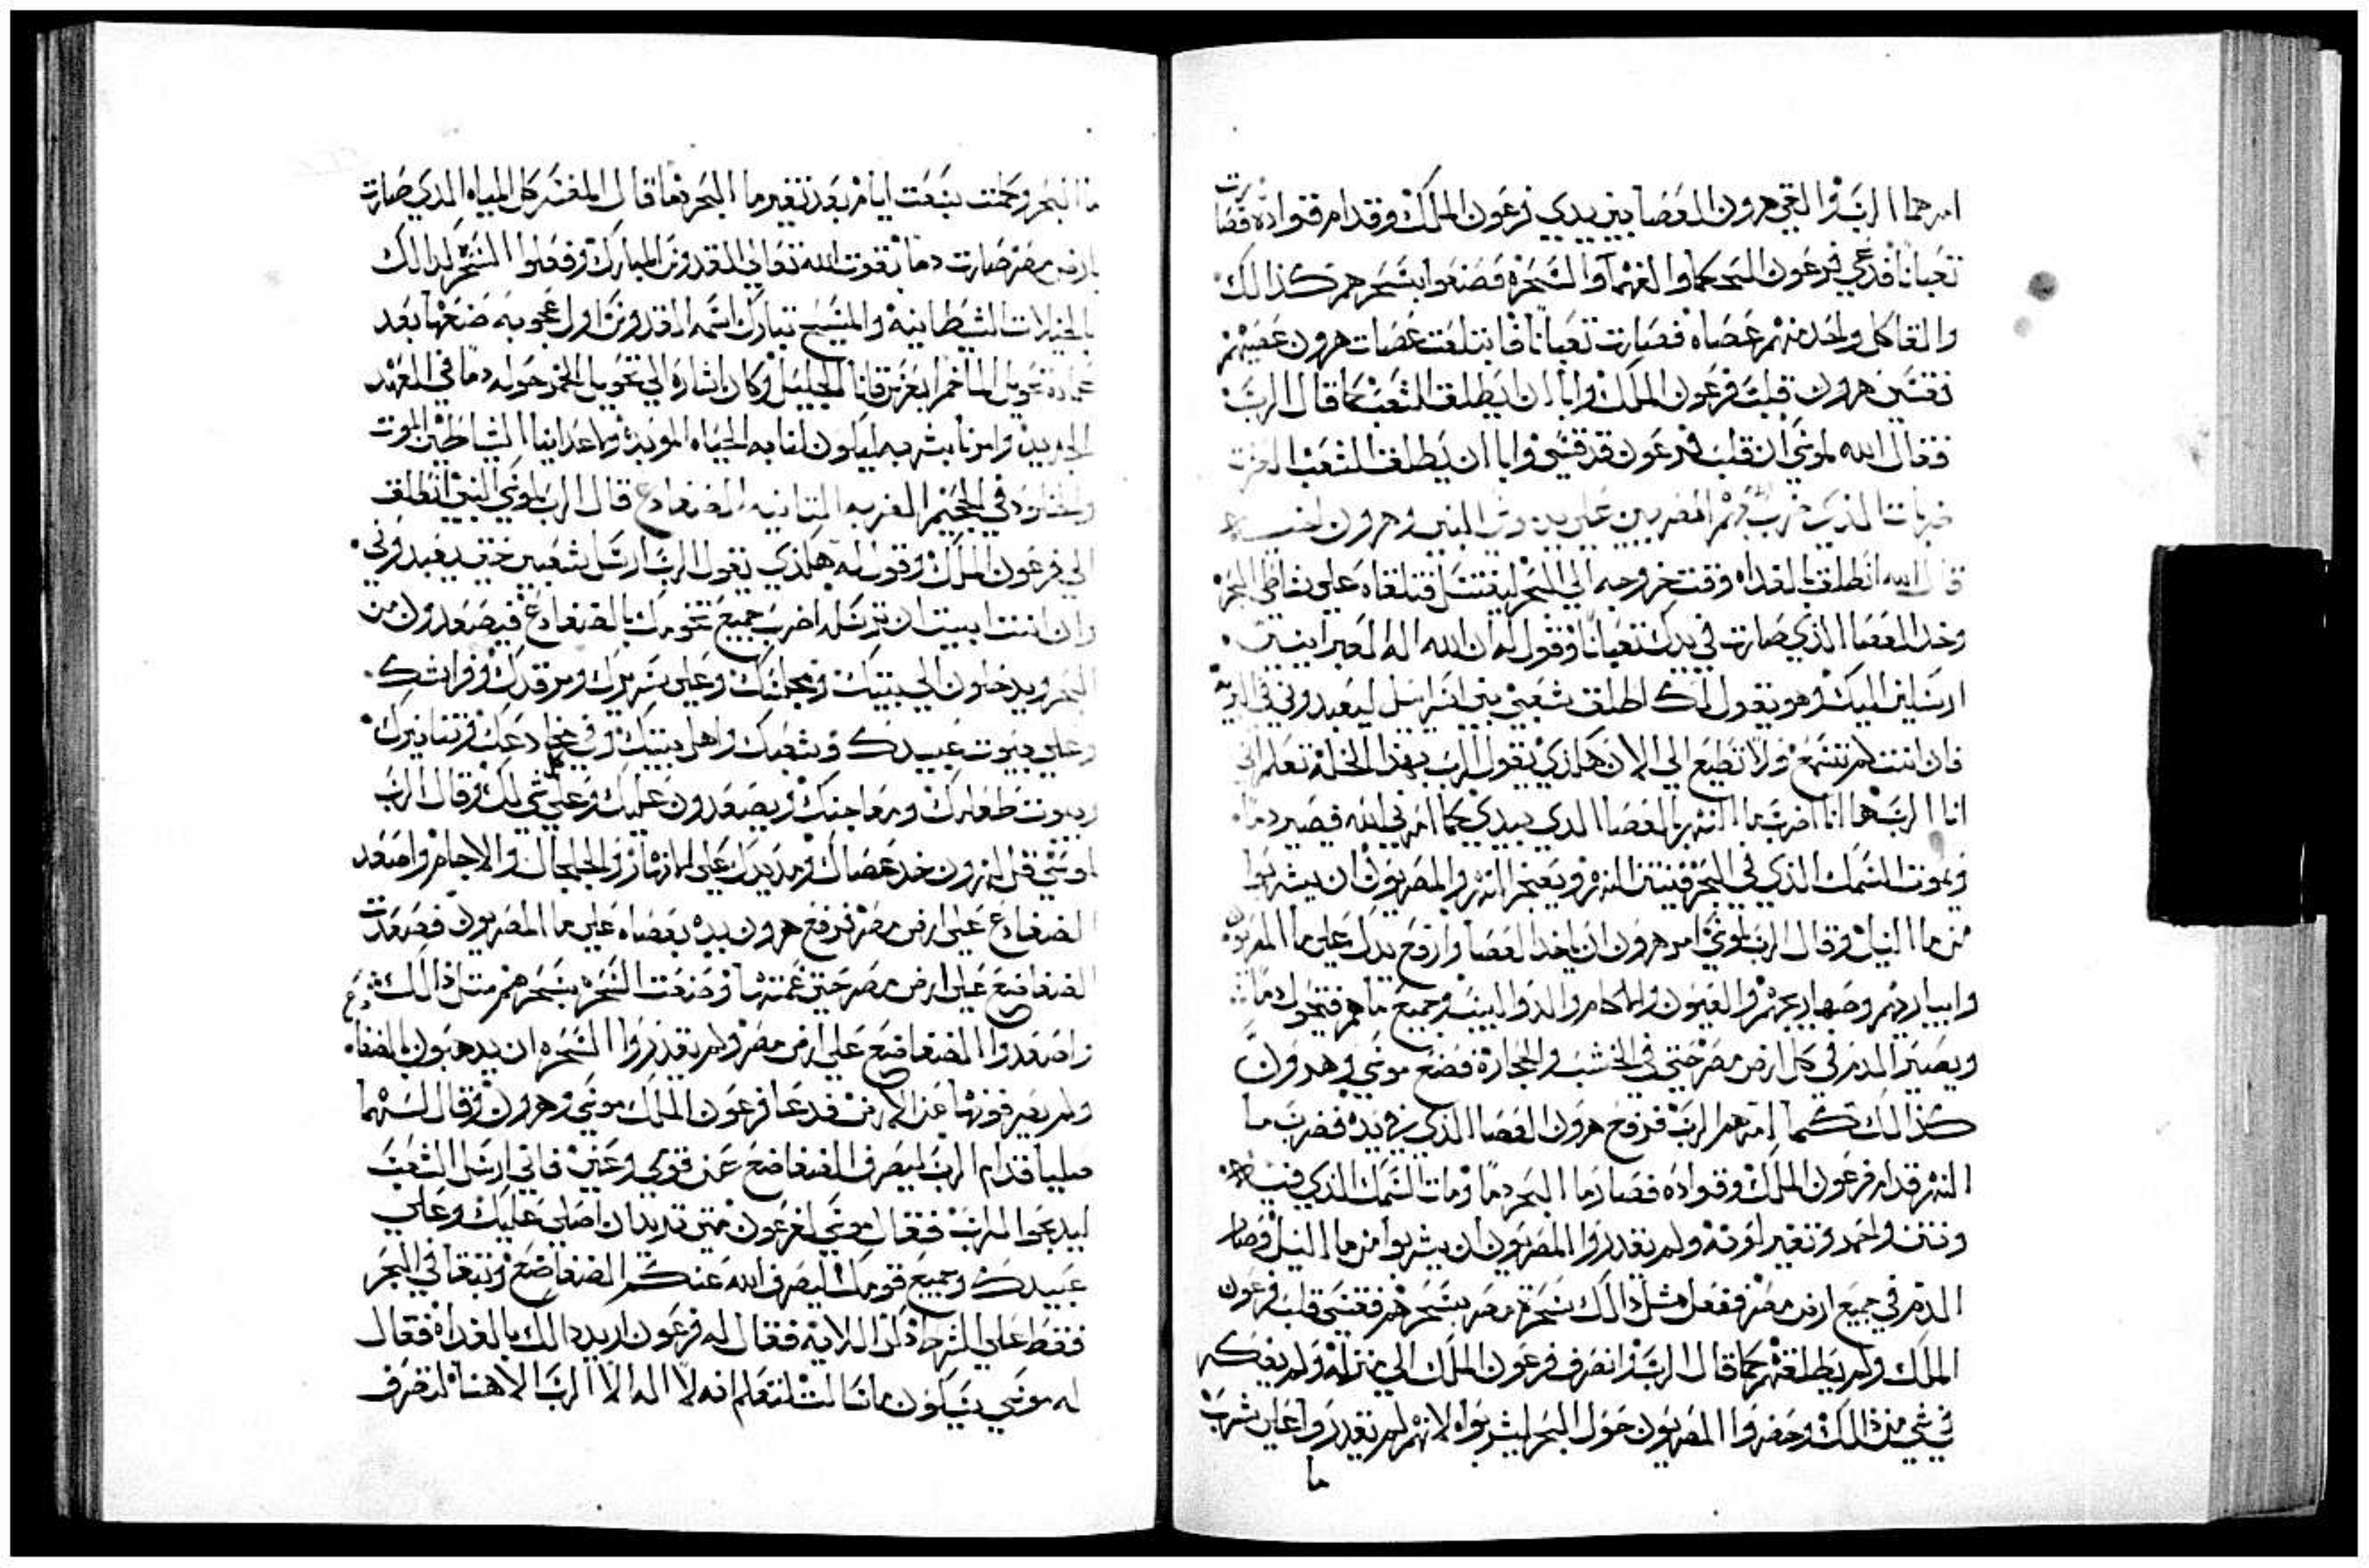 امرهما الرب والقى هرون العصا بين يدي فرعون الملك وقدام قواده فصارت
تعبانا فدعي فرعون الحكما والفهما والسحره فصنعوا بسحرهم كذالك
والقا كل واحد منهم عصاه فصارت تعبانا فابتلعت عصات هرون عصيهم
فقسي قلب فرعون الملك وابا ان يطلق الشعب كما قال الرب
فقال الله لموسي ان قلب فرعون قد قسي وابا ان يطلق الشعب
ضربات الذي ضرب بهم المصريين علي يد موسي النبي وهرون
قال الله انطلق بالغداه وقت خروجه الي البحر ليغتسل فتلقاه علي شاطي البحر
وخد العصا الذي صارت في يدك تعبانا وقول له ان الله اله العبرانيين
ارسلني اليك وهو يقول لك اطلق شعبي بني اسرايل ليعبدوني في البريه
فان انت لم تسمع ولا تطيع الي الان هكذي يقول الرب بهذا الخله تعلم اني
انا الرب ها انا اضرب ما النهر بالعصا الذي بيدي كما امرني الله فيصير دما
ويموت السمك الذي في البحر فينتن النهر ويعجز النهر والمصريون ان يشربوا
من ما النيل وقال الرب لموسي امر هرون ان ياخد العصا وارفع يدك علي ما المصريون
وابيارهم وصهاريجهم والعيون والاكام والدواليب وجميع ماهم فتحول دما
ويصير الدم في كل ارض مصر حتي في الخشب والحجاره فصنع موسي وهرون
كذالك كما امرهم الرب فرفع هرون العصا الذي في يده فضرب ما
النهر قدام فرعون الملك وقواده فصار ما البحر دما ومات السمك الذي فيه
ونتن واحمد وتغير لونه ولم يقدروا المصريون ان يشربوا من ما النيل وصار
الدم في جميع ارض مصر ففعل مثل ذالك سحرة مصر بسحرهم فقسي قلب فرعون
الملك ولم يطلقهم كما قال الرب وانصرف فرعون الملك الي منزله ولم يفكر
في شي من ذالك وحفروا المصريون حول البحر ليشربواه لانهم لم يقدروا علي شرب
ما
ما البحر وكملت سبعت ايام بعد تغير ما البحر دما قال المفسر كل المياه الذي صارت
بارض مصر صارت دما بقوت الله تعالي القدوس المبارك وفعلوا السحره كدالك
بالخيالات الشيطانيه والمسيح تبارك اسمه القدوس اول اعجوبه صنعها بعد
عماده تحويل الما خمر ابعرس قانا الجليل وكان اشاره الي تحويل الخمر حوله دما في العهد
الجديد وامرنا بشربه ليكون لنا به الحياه الموبده وما اعداينا الشياطين الموت
والخلود في الجحيم الضربه التانيه الضفادع قال الرب لموسي النبي انطلق
الي فرعون الملك وقول له هكذي يقول الرب ارسل شعبي حتي يعبدوني
وان انت ابيت ان ترسله اضرب جميع تخومك بالضفادع فيصعدون من
البحر ويدخلون الي بيتك ومجلسك وعلي سريرك ومرقدك وفراشك
وعلي بيوت عبيدك وشعبك واهل بيتك وفي مخادعك وتنانيرك
وبيوت طعامك ومعاجنك ويصعدون عليك وعلي كل شي لك وقال الرب
لموسي قل لهرون خد عصاك ومد يدك علي الانهار والخلجان والاجام واصعد
الضفادع علي ارض مصر فرفع هرون يده بعصاه علي ما المصريون فصعدت
الضفاضع علي ارض مصر حتي غمتها وصنعت السحره بسحرهم متل ذالك
واصعدوا الضفاضع علي ارض مصر ولم يقدروا السحره ان يدهبون بالضفادع
ولم يصرفونها عن الارض فدعا فرعون الملك موسي وهرون وقال لهما
صليا قدام الرب ليصرف الضفاضع عني قومي وعني فاني ارسل الشعب
ليدبحوا للرب فقال موسي لفرعون متي تريد ان اصلي عليك وعلي
عبيدك وجميع قومك ليصرف الله عنكم الضفاضع وتبقا في البحر
فقط علي النهر فقال له فرعون اريد دالك بالغداه فقال
له موسي سيكون ما سالت لتعلم انه لا اله الا الرب الاهنا لتصرف